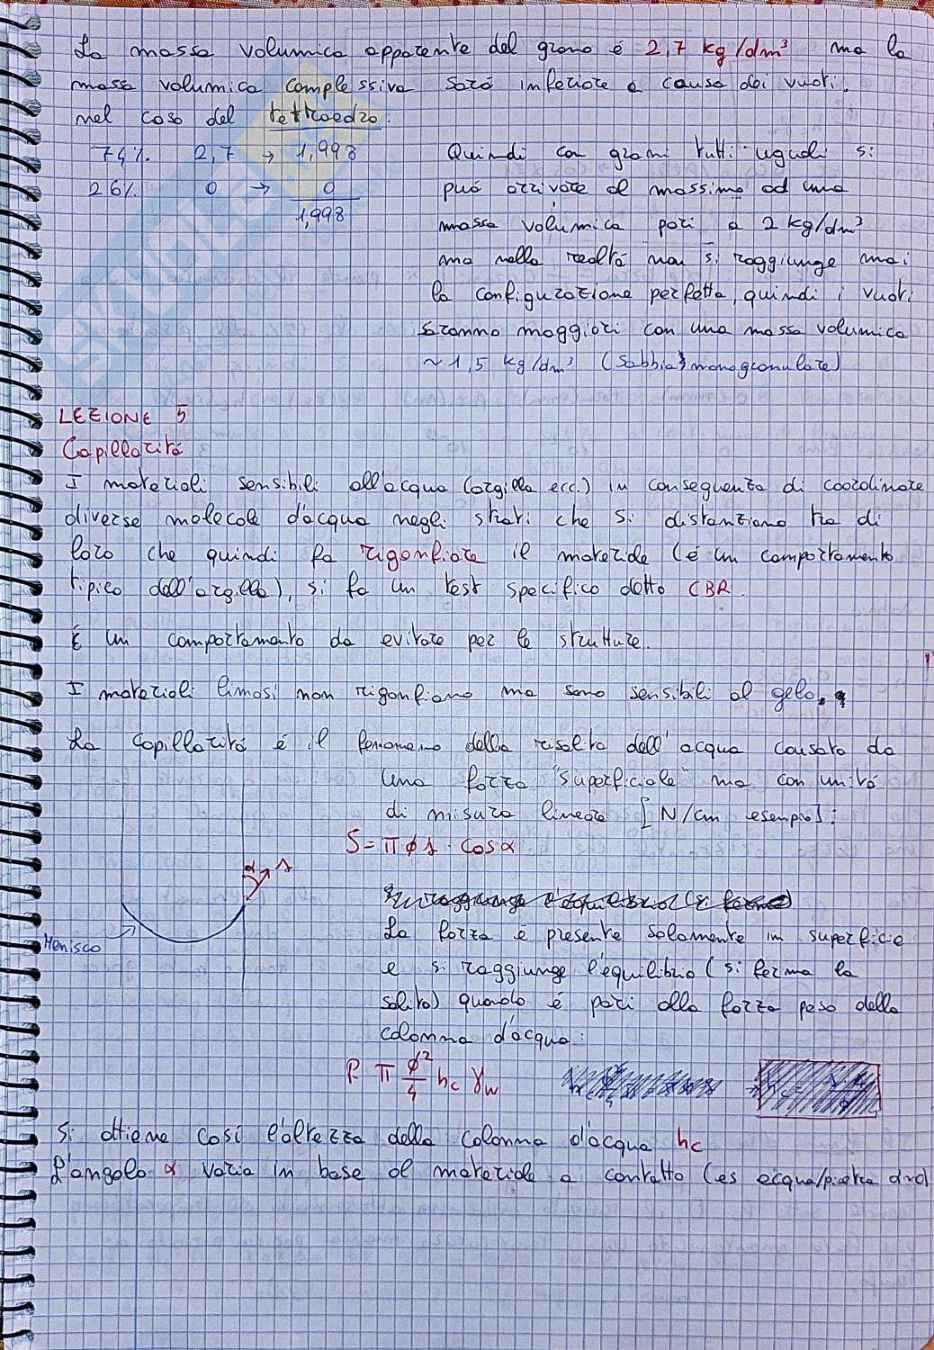 La massa volumica apparente del grano è 2,7 kg/dm³ ma la
massa volumica complessiva sarà inferiore a causa dei vuoti.
nel caso del tettraedro:
74% 2,7 → 1,998
26% 0 → 0
1,998
Quindi con grani tutti uguali si
può arrivare al massimo ad una
massa volumica pari a 2 kg/dm³
ma nella realtà non si raggiunge mai
la configurazione perfetta, quindi i vuoti
saranno maggiori con una massa volumica
~1,5 kg/dm³ (sabbia monogranulare)
LEZIONE 5
Capillarità
I materiali sensibili all'acqua (argilla ecc.) in conseguenza di coordinare
diverse molecole d'acqua negli strati che si distanziano tra di
loro che quindi fa rigonfiare il materiale (è un comportamento
tipico dell'argilla), si fa un test specifico detto CBR.
È un comportamento da evitare per le strutture.
I materiali limosi non rigonfiano ma sono sensibili al gelo.
La capillarità è il fenomeno della risalita dell'acqua causata da
una forza "superficiale" ma con unità
di misura lineare [N/cm esempio]:
S = π ϕ s · cosα
α s
Menisco
La forza è presente solamente in superficie
e si raggiunge l'equilibrio (si ferma la
salita) quando è pari alla forza peso della
colonna d'acqua:
P = π ϕ²/4 hc γw
Si ottiene così l'altezza della colonna d'acqua hc
L'angolo α varia in base al materiale a contatto (es acqua/pietra